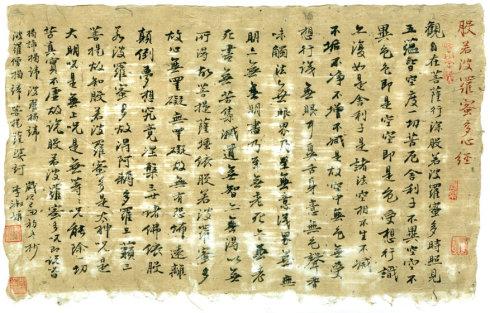 般若波羅蜜多心經
觀自在菩薩行深般若波羅蜜多時照見
五蘊皆空度一切苦厄舍利子色不異空空不
異色色即是空空即是色受想行識
亦復如是舍利子是諸法空相不生不滅
不垢不淨不增不減是故空中無色無受
想行識無眼耳鼻舌身意無色聲香
味觸法無眼界乃至無意識界無無
明亦無無明盡乃至無老死亦無老
死盡無苦集滅道無智亦無得以無
所得故菩提薩埵依般若波羅蜜多
故心無罣礙無罣礙故無有恐怖遠離
顛倒夢想究竟涅槃三世諸佛依般
若波羅蜜多故得阿耨多羅三藐三
菩提故知般若波羅蜜多是大神咒是
大明咒是無上咒是無等等咒能除一切
苦真實不虛故說般若波羅蜜多咒即說咒
揭諦揭諦波羅揭諦
波羅僧揭諦菩提薩婆訶